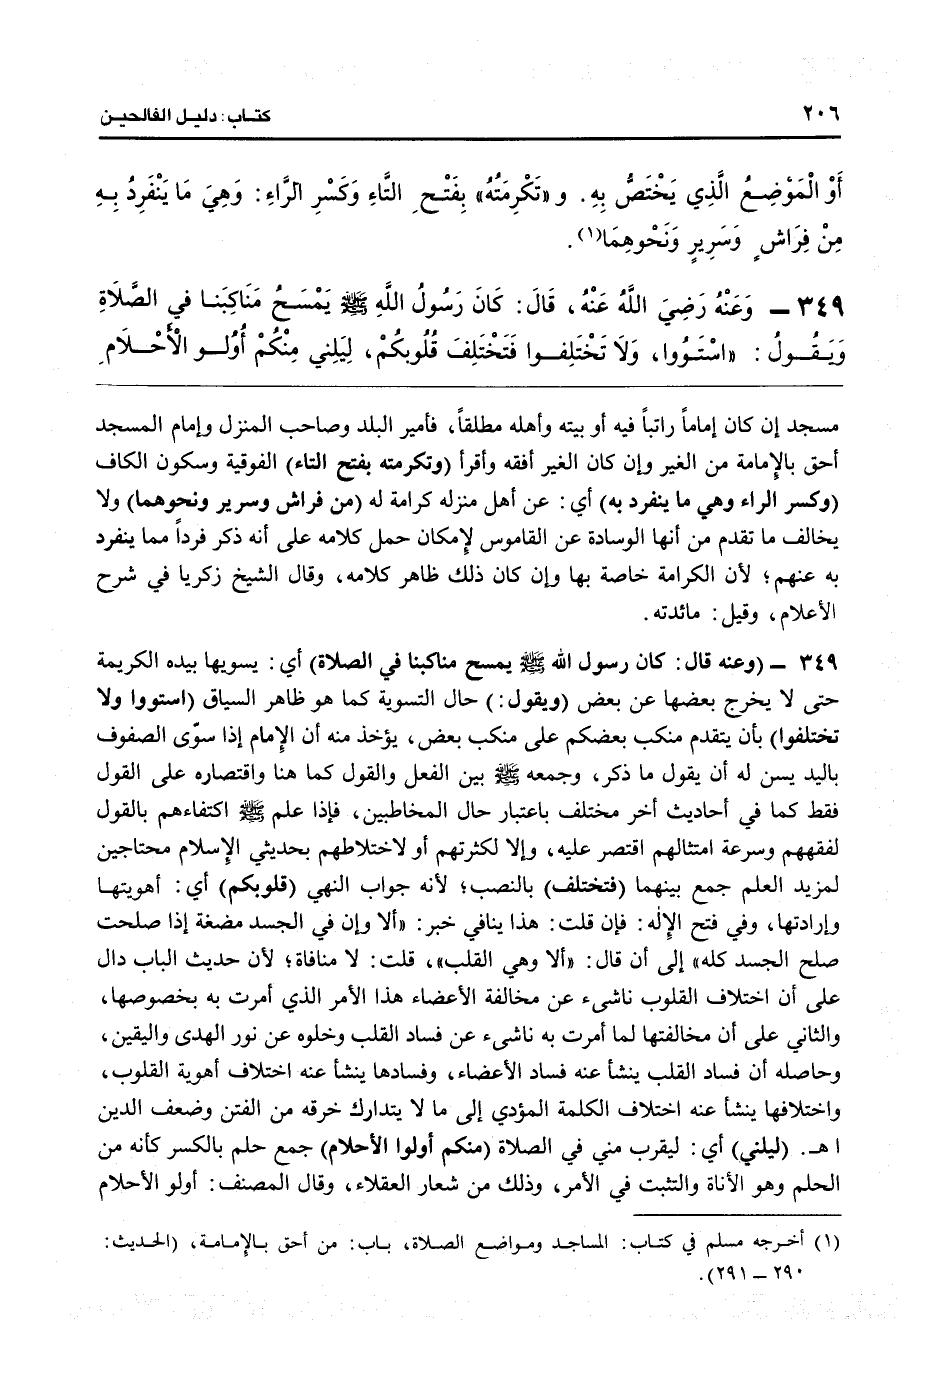 ٢٠٦ كتاب: دليل الفالحين
أَوْ الْمَوْضِعُ الَّذِي يَخْتَصُّ بِهِ. و «تَكْرِمَتُهُ» بِفَتْحِ التَّاءِ وَكَسْرِ الرَّاءِ: وَهِيَ مَا يَنْفَرِدُ بِهِ
مِنْ فِرَاشٍ وَسَرِيرٍ وَنَحْوِهِمَا(١).
٣٤٩ ـ وَعَنْهُ رَضِيَ اللَّهُ عَنْهُ، قَالَ: كَانَ رَسُولُ اللَّهِ ﷺ يَمْسَحُ مَنَاكِبَنَا فِي الصَّلَاةِ
وَيَقُولُ: «اسْتَوُوا، وَلَا تَخْتَلِفُوا فَتَخْتَلِفَ قُلُوبُكُمْ، لِيَلِنِي مِنْكُمْ أُولُو الْأَحْلَامِ
مسجد إن كان إماماً راتباً فيه أو بيته وأهله مطلقاً، فأمير البلد وصاحب المنزل وإمام المسجد
أحق بالإمامة من الغير وإن كان الغير أفقه وأقرأ (وتكرمته بفتح التاء) الفوقية وسكون الكاف
(وكسر الراء وهي ما ينفرد به) أي: عن أهل منزله كرامة له (من فراش وسرير ونحوهما) ولا
يخالف ما تقدم من أنها الوسادة عن القاموس لإمكان حمل كلامه على أنه ذكر فرداً مما ينفرد
به عنهم؛ لأن الكرامة خاصة بها وإن كان ذلك ظاهر كلامه، وقال الشيخ زكريا في شرح
الأعلام، وقيل: مائدته.
٣٤٩ ـ (وعنه قال: كان رسول الله ﷺ يمسح مناكبنا في الصلاة) أي: يسويها بيده الكريمة
حتى لا يخرج بعضها عن بعض (ويقول:) حال التسوية كما هو ظاهر السياق (استووا ولا
تختلفوا) بأن يتقدم منكب بعضكم على منكب بعض، يؤخذ منه أن الإمام إذا سوّى الصفوف
باليد يسن له أن يقول ما ذكر، وجمعه ﷺ بين الفعل والقول كما هنا واقتصاره على القول
فقط كما في أحاديث أخر مختلف باعتبار حال المخاطبين، فإذا علم ﷺ اكتفاءهم بالقول
لفقههم وسرعة امتثالهم اقتصر عليه، وإلا لكثرتهم أو لاختلاطهم بحديثي الإسلام محتاجين
لمزيد العلم جمع بينهما (فتختلف) بالنصب؛ لأنه جواب النهي (قلوبكم) أي: أهويتها
وإرادتها، وفي فتح الإله: فإن قلت: هذا ينافي خبر: «ألا وإن في الجسد مضغة إذا صلحت
صلح الجسد كله» إلى أن قال: «ألا وهي القلب»، قلت: لا منافاة؛ لأن حديث الباب دال
على أن اختلاف القلوب ناشىء عن مخالفة الأعضاء هذا الأمر الذي أمرت به بخصوصها،
والثاني على أن مخالفتها لما أمرت به ناشىء عن فساد القلب وخلوه عن نور الهدى واليقين،
وحاصله أن فساد القلب ينشأ عنه فساد الأعضاء، وفسادها ينشأ عنه اختلاف أهوية القلوب،
واختلافها ينشأ عنه اختلاف الكلمة المؤدي إلى ما لا يتدارك خرقه من الفتن وضعف الدين
ا هـ. (ليلني) أي: ليقرب مني في الصلاة (منكم أولوا الأحلام) جمع حلم بالكسر كأنه من
الحلم وهو الأناة والتثبت في الأمر، وذلك من شعار العقلاء، وقال المصنف: أولو الأحلام
(١) أخرجه مسلم في كتاب: المساجد ومواضع الصلاة، باب: من أحق بالإمامة، (الحديث:
٢٩٠ ـ ٢٩١).